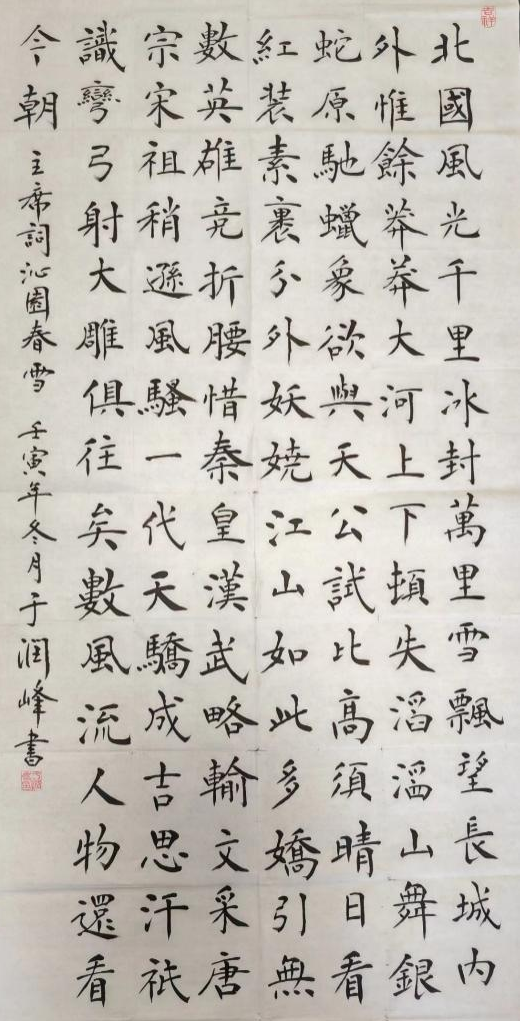 吉祥
北國風光千里冰封萬里雪飄望長城內
外惟餘莽莽大河上下頓失滔滔山舞銀
蛇原馳蠟象欲與天公試比高須晴日看
紅装素裹分外妖嬈江山如此多嬌引無
數英雄竞折腰惜秦皇漢武略輸文采唐
宗宋祖稍遜風騷一代天驕成吉思汗祇
識彎弓射大雕俱往矣數風流人物還看
今朝 主席詞沁園春雪 壬寅年冬月于潤峰書